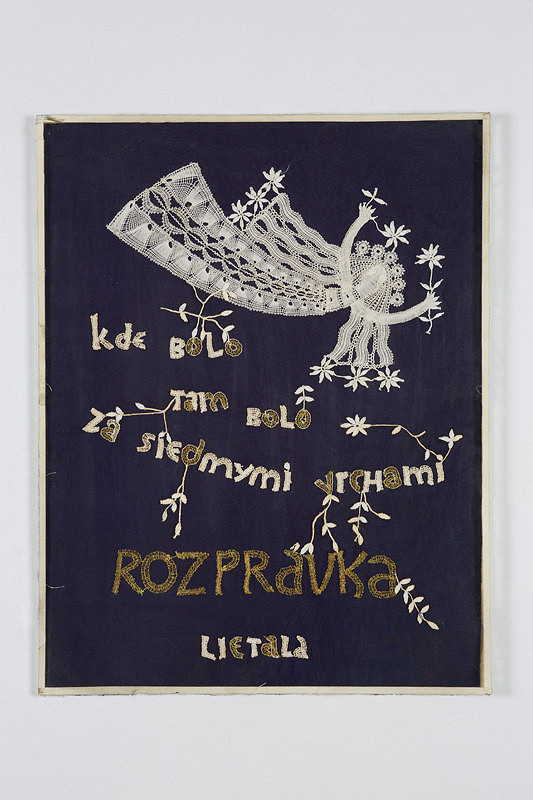 kde BOLO
Tam BOLO
Za SIEdmymi VrCHamI
ROZPRaVKa
LIETala